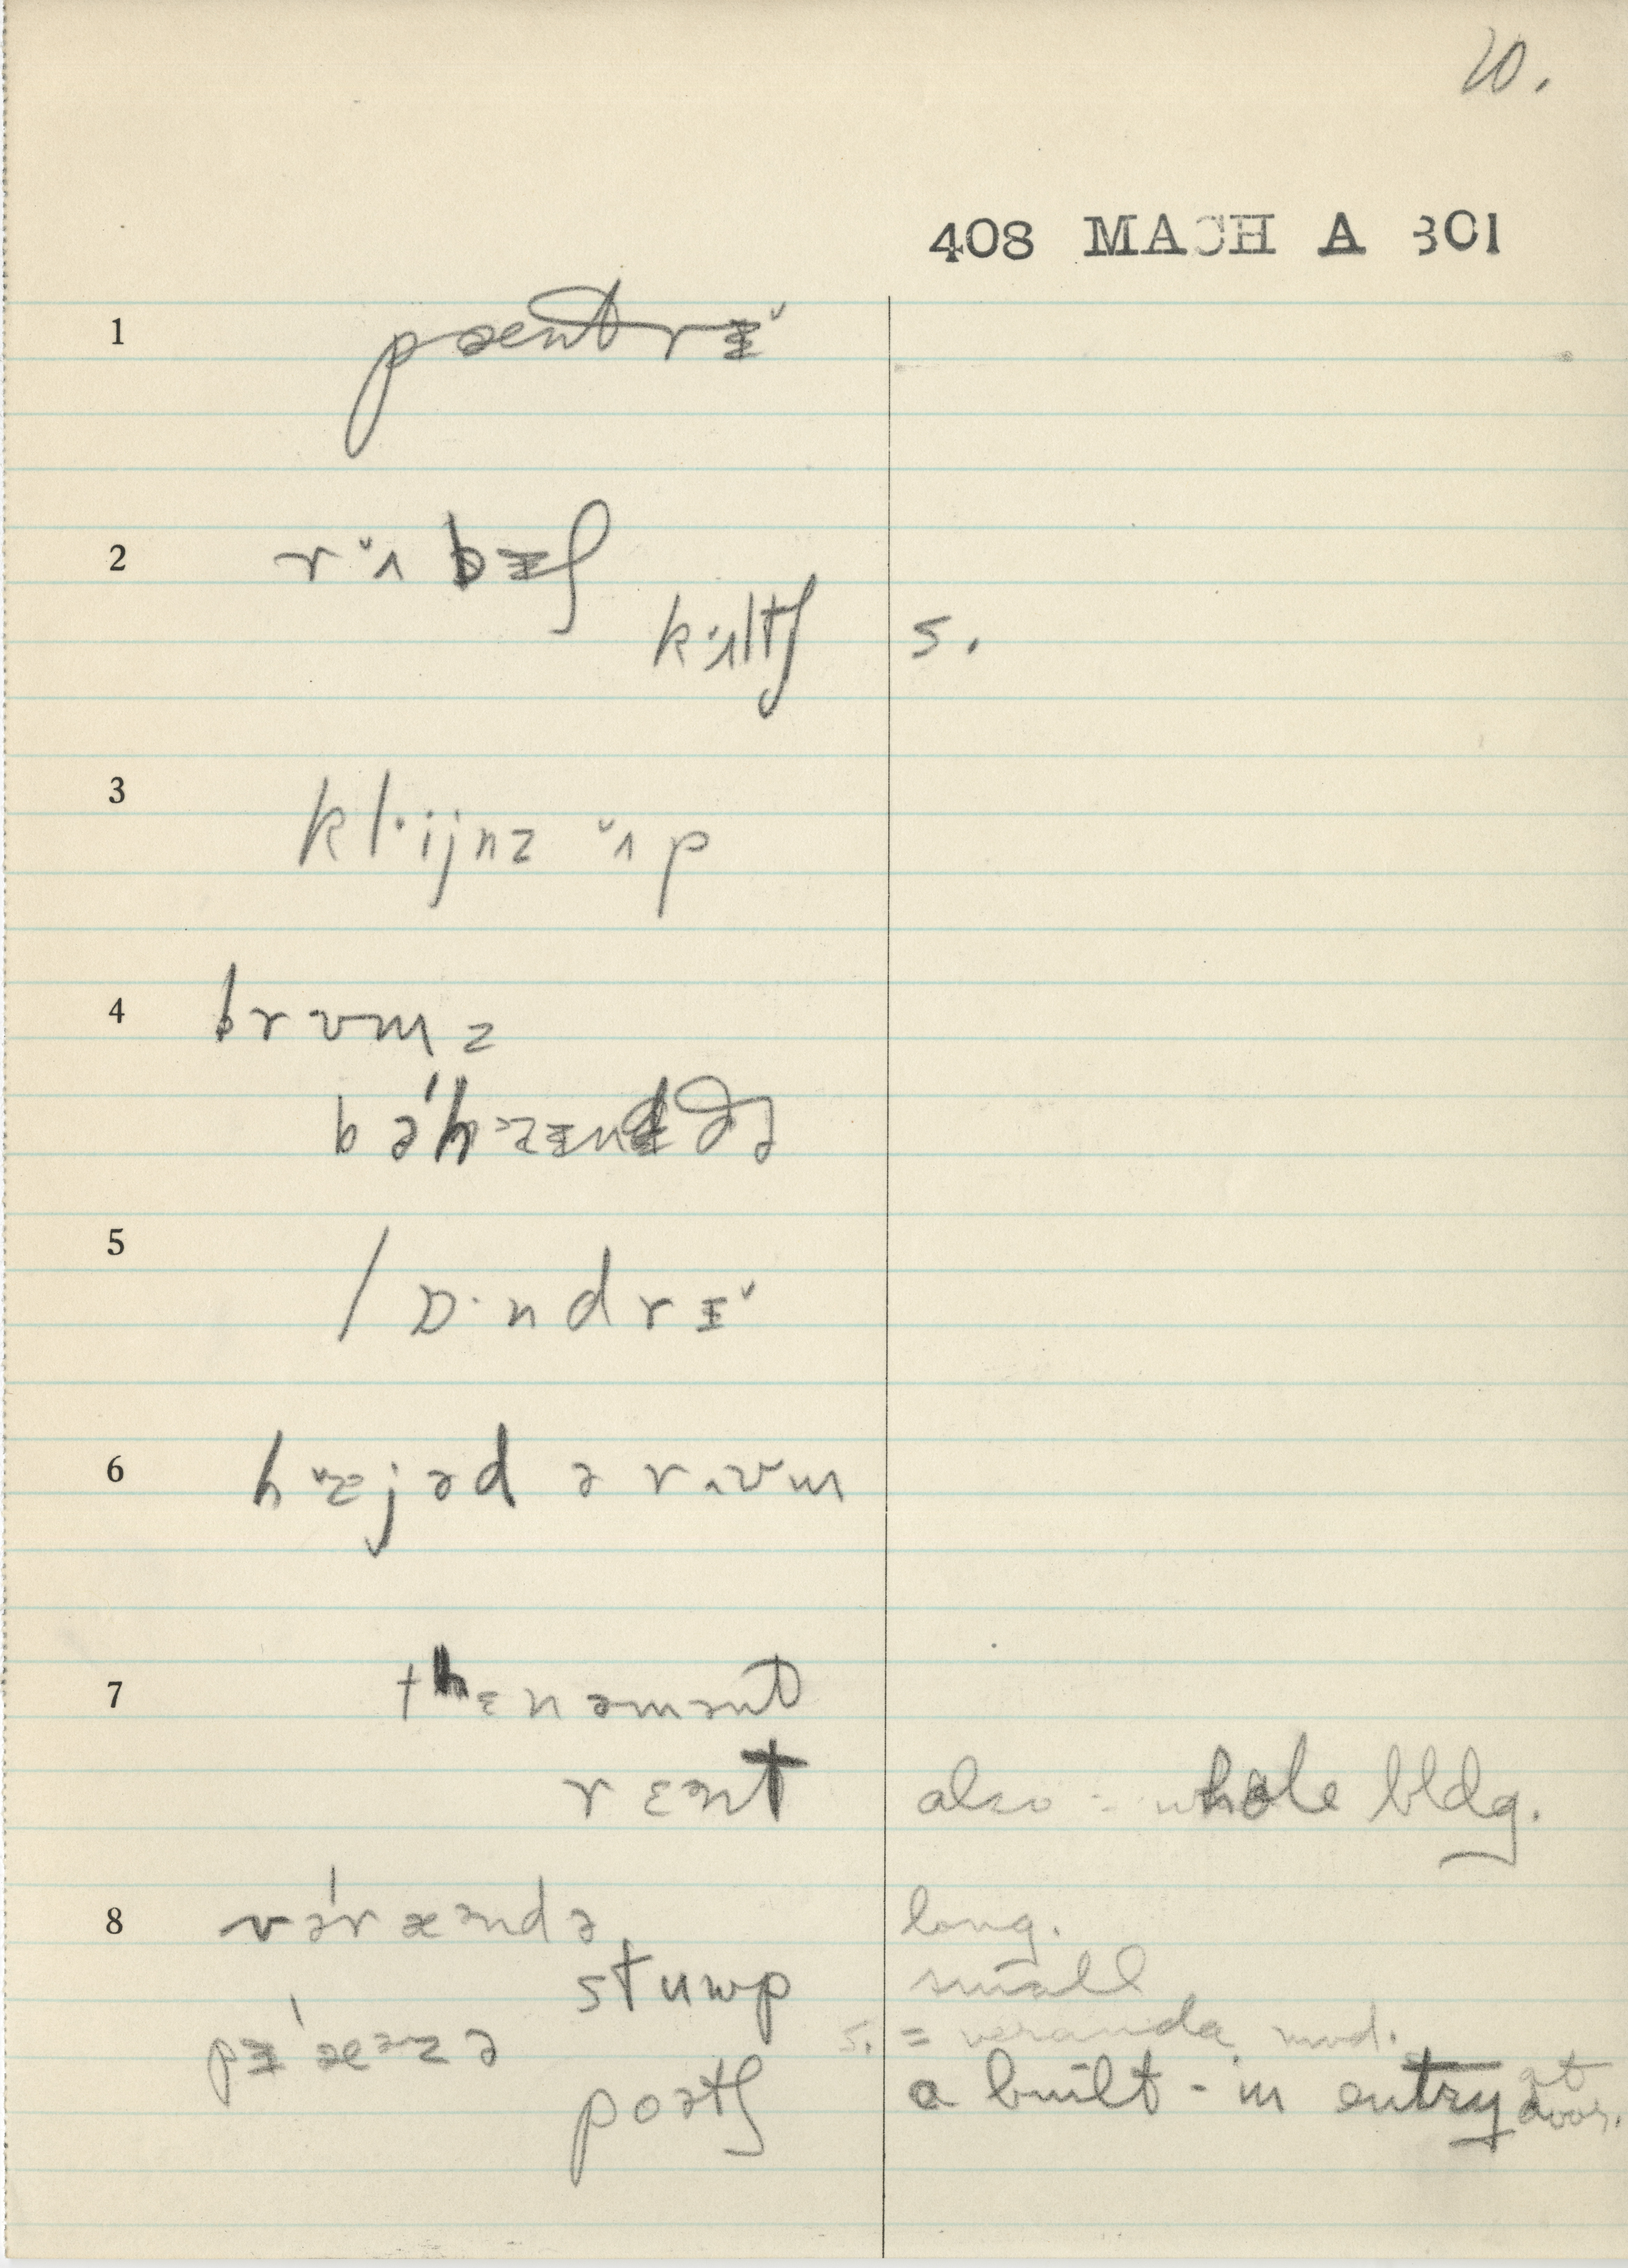 20.
408 MACH A 301
1 pæntrɪ̵̌
2 rˇʌbɪ̵ʃ
kˇʌltʃ s.
3 kl·ijnz ˇʌp
4 brʊmz
bəhɪ̵ndðə
5 lɒ·ndrɪ̵̌
6 hˇɛjəd ə r ʊm
7 tʰɛnəmənt
rɛənt also = whole bldg.
8 vərǽəndə long.
stuwp small
pɪ̵ǽəzə s. = veranda, mod.
poətʃ a built-in entry at door.